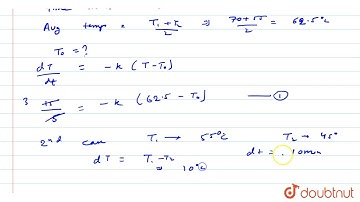 Avg temp = T₁ + T₂ / 2 ⇒ 70+55 / 2 = 62.5°C
T₀ = ?
dT / dt = -k (T - T₀)
3 = -k (62.5 - T₀) ——— ①
2nd case T₁ → 55°C T₂ → 45°
dT = T₁ - T₂ dt = 10min
⇒ 10°C
doubtnut